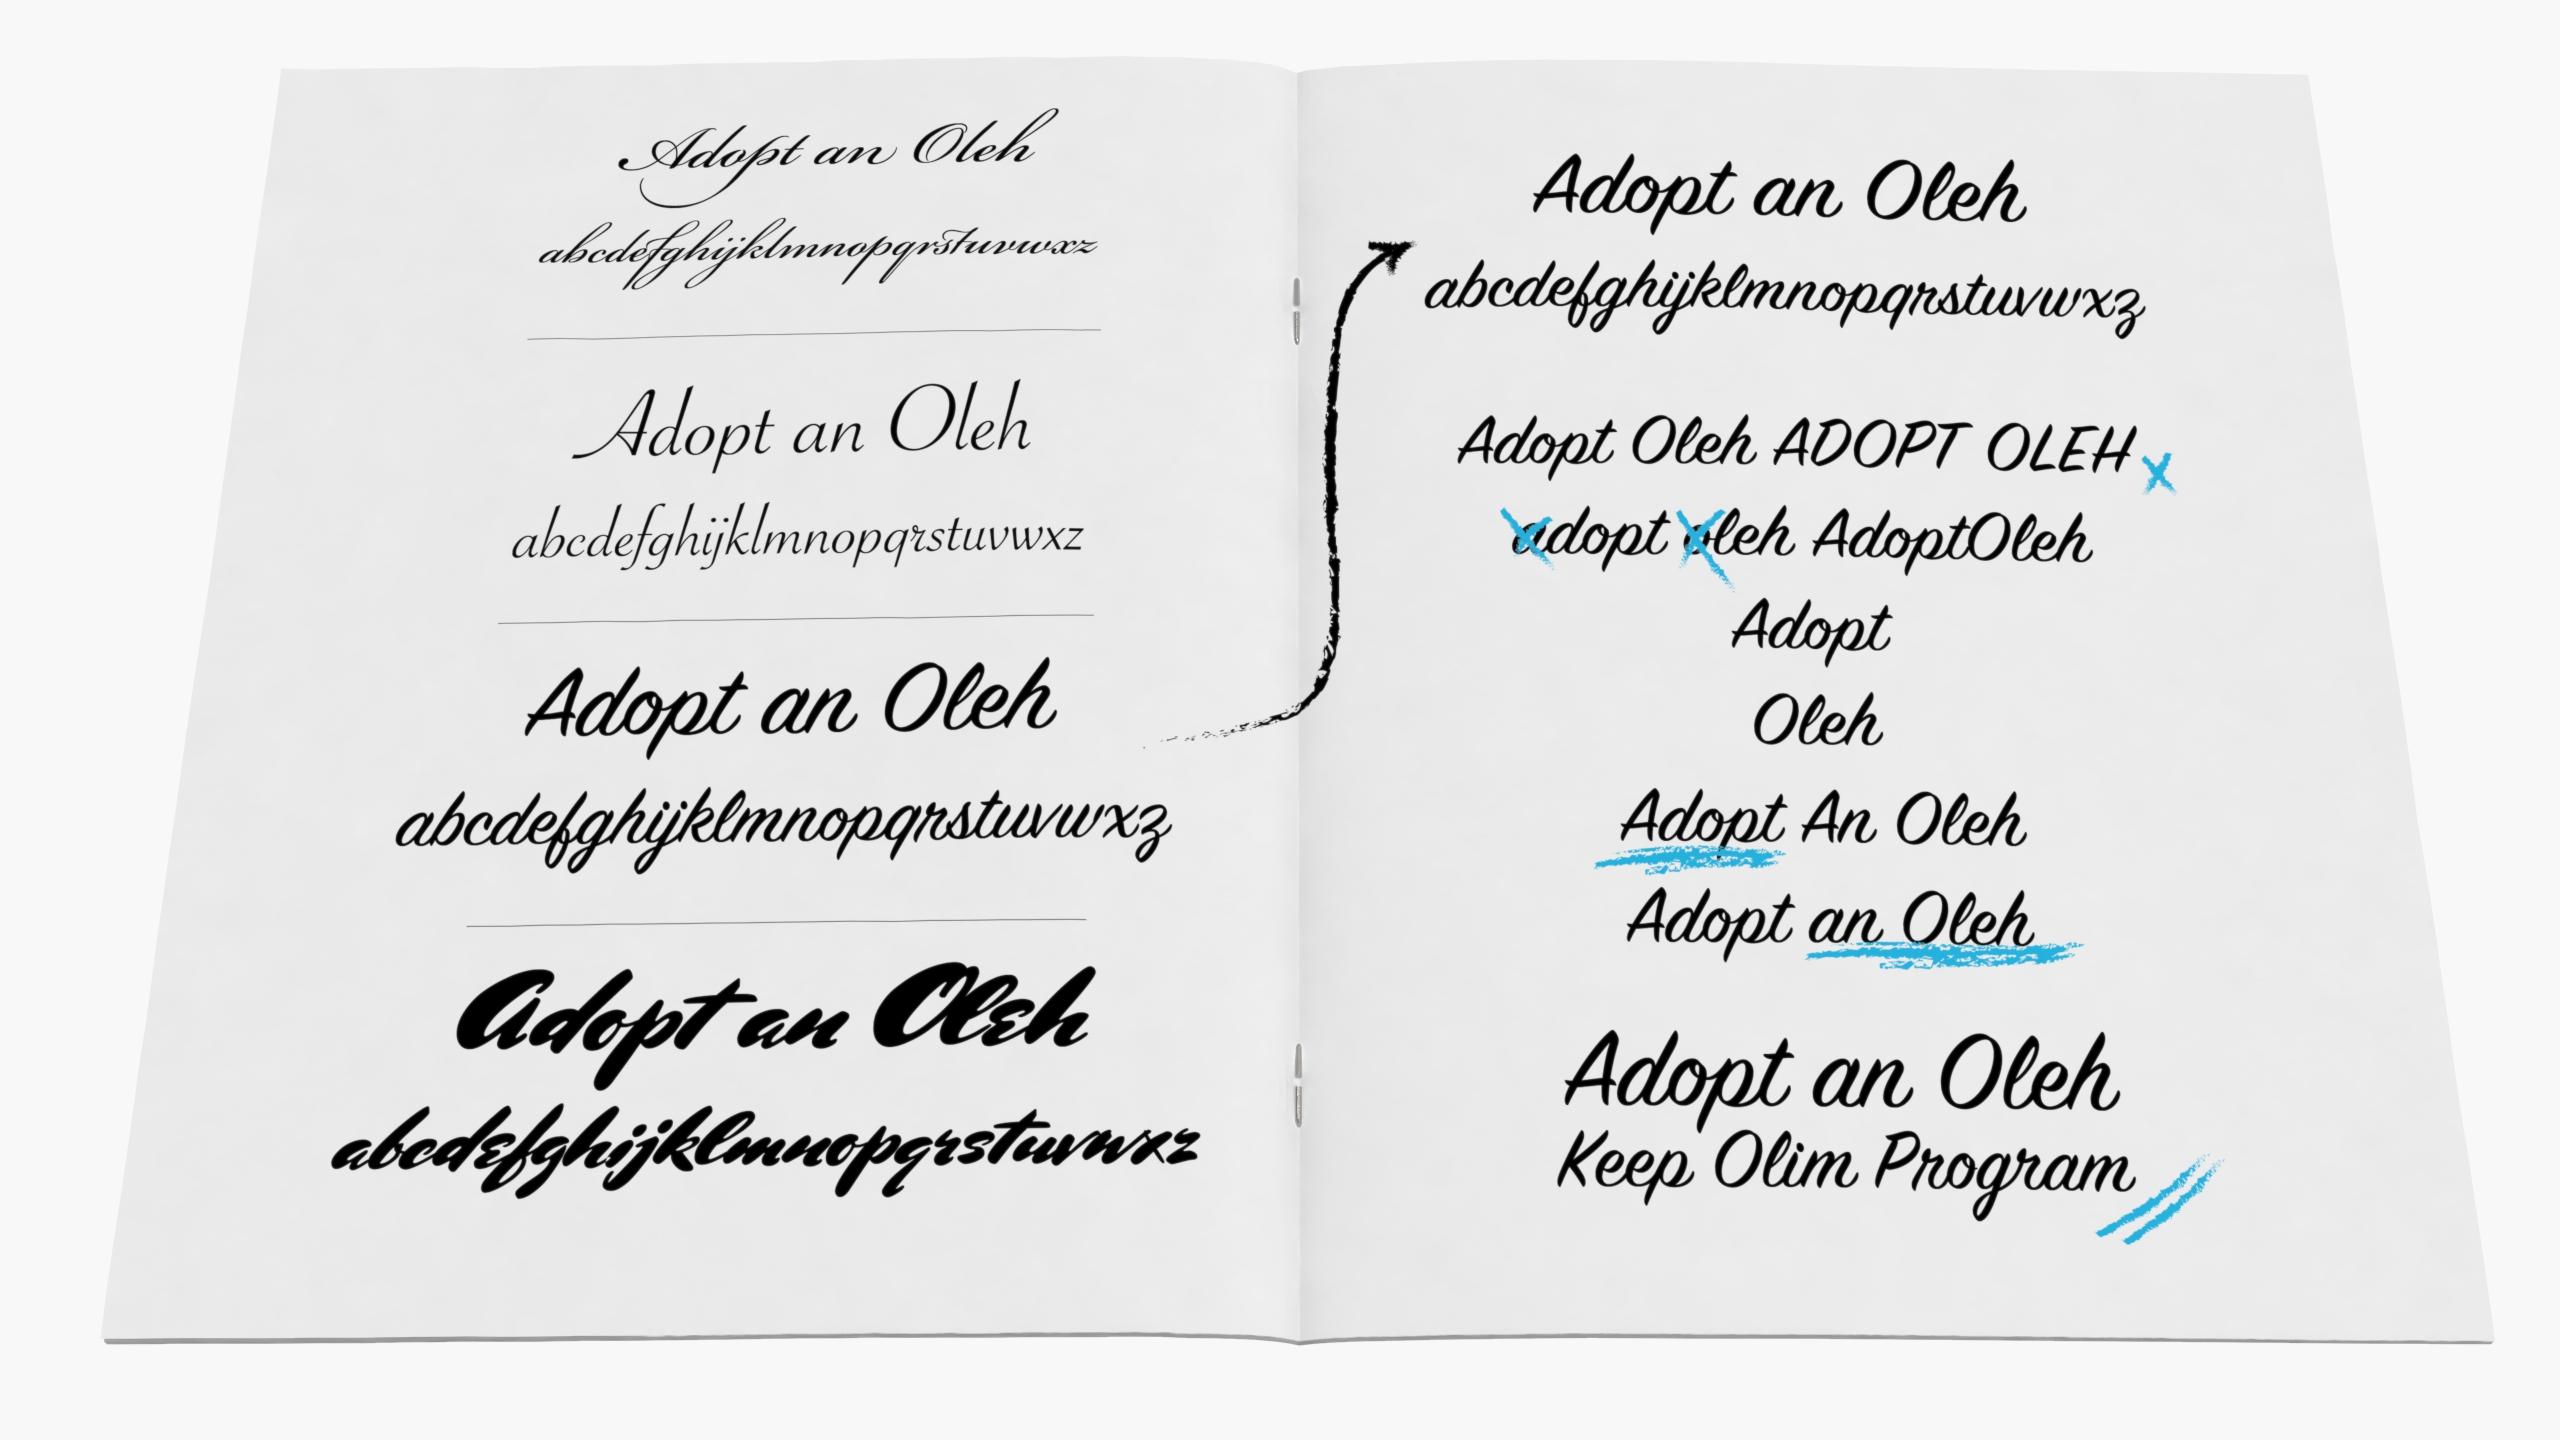 Adopt an Oleh
abcdefghijklmnopqrstuvwxz
Adopt an Oleh
abcdefghijklmnopqrstuvwxz
Adopt an Oleh
abcdefghijklmnopqrstuvwxz
Adopt an Oleh
abcdefghijklmnopqrstuvwxz
Adopt an Oleh
abcdefghijklmnopqrstuvwxz
Adopt Oleh ADOPT OLEH
adopt oleh AdoptOleh
Adopt
Oleh
Adopt An Oleh
Adopt an Oleh
Adopt an Oleh
Keep Olim Program